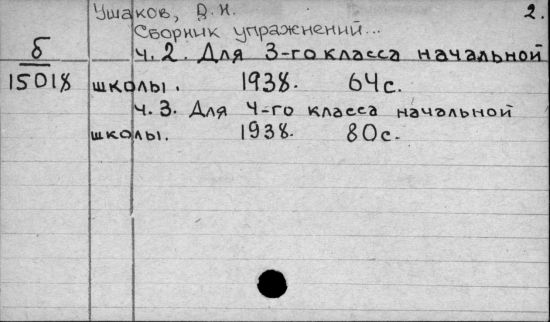 Ушаков, Д. Н. 2.
Сборник упражнений...
б ч. 2. Для 3-го класса начальной
15018 школы. 1938. 64с.
ч. 3. Для 4-го класса начальной
школы. 1938. 80с.